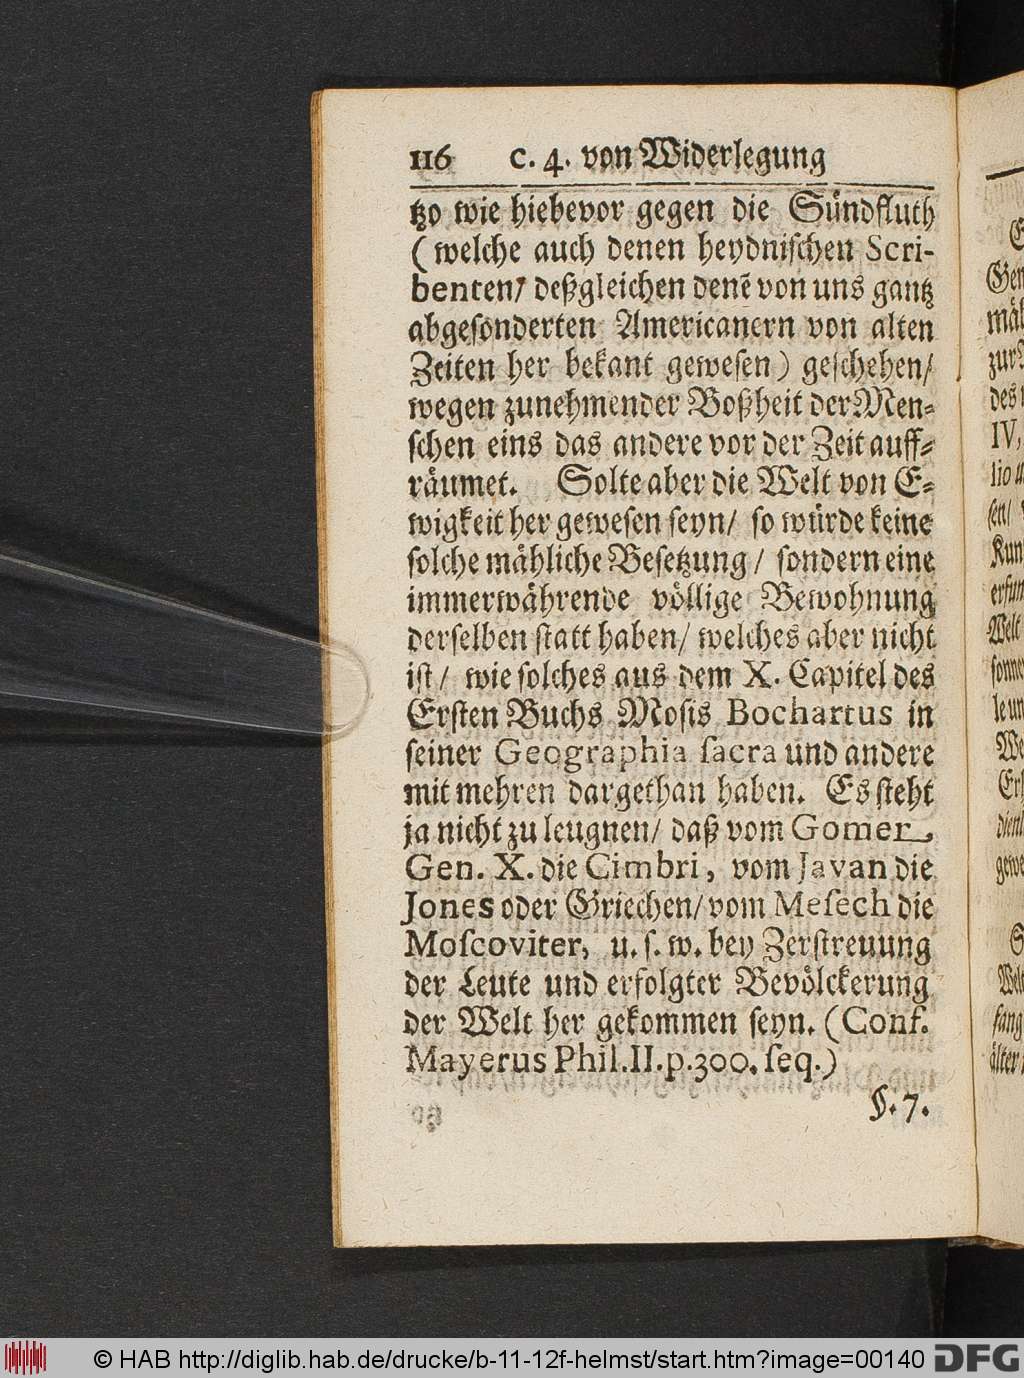 116 c. 4. von Widerlegung
tzo wie hiebevor gegen die Sündfluth
(welche auch denen heydnischen Scri-
benten/ deßgleichen denē von uns gantz
abgesonderten Americanern von alten
Zeiten her bekant gewesen) geschehen/
wegen zunehmender Boßheit der Men-
schen eins das andere vor der Zeit auff-
räumet. Solte aber die Welt von E-
wigkeit her gewesen seyn/ so würde keine
solche mähliche Besetzung/ sondern eine
immerwährende völlige Bewohnung
derselben statt haben/ welches aber nicht
ist/ wie solches aus dem X. Capitel des
Ersten Buchs Mosis Bochartus in
seiner Geographia sacra und andere
mit mehren dargethan haben. Es steht
ja nicht zu leugnen/ daß vom Gomer,
Gen. X. die Cimbri, vom Javan die
Jones oder Griechen/ vom Mesech die
Moscoviter, u. s. w. bey Zerstreuung
der Leute und erfolgter Bevölckerung
der Welt her gekommen seyn. (Conf.
Mayerus Phil. II. p. 300. seq.)
§. 7.
IV,
des
Welt
© HAB http://diglib.hab.de/drucke/b-11-12f-helmst/start.htm?image=00140 DFG